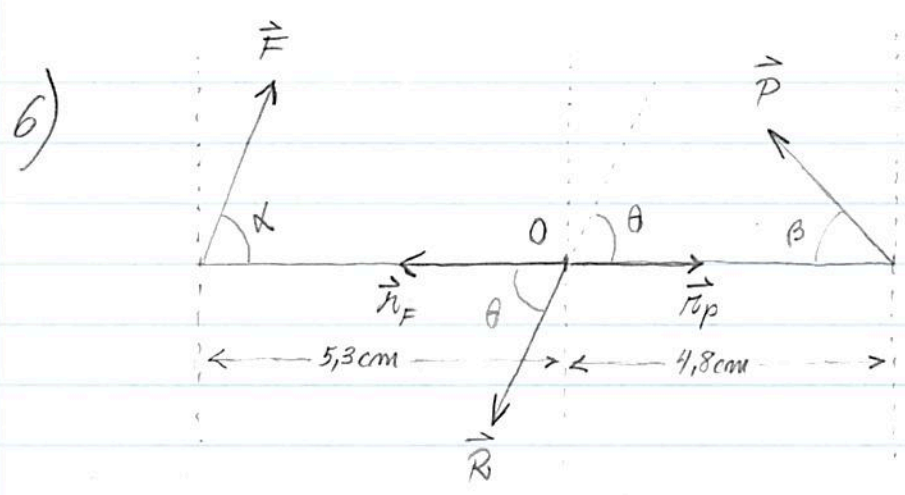 6)
F
P
α
O
θ
β
r_F
θ
r_P
5,3cm
4,8cm
R